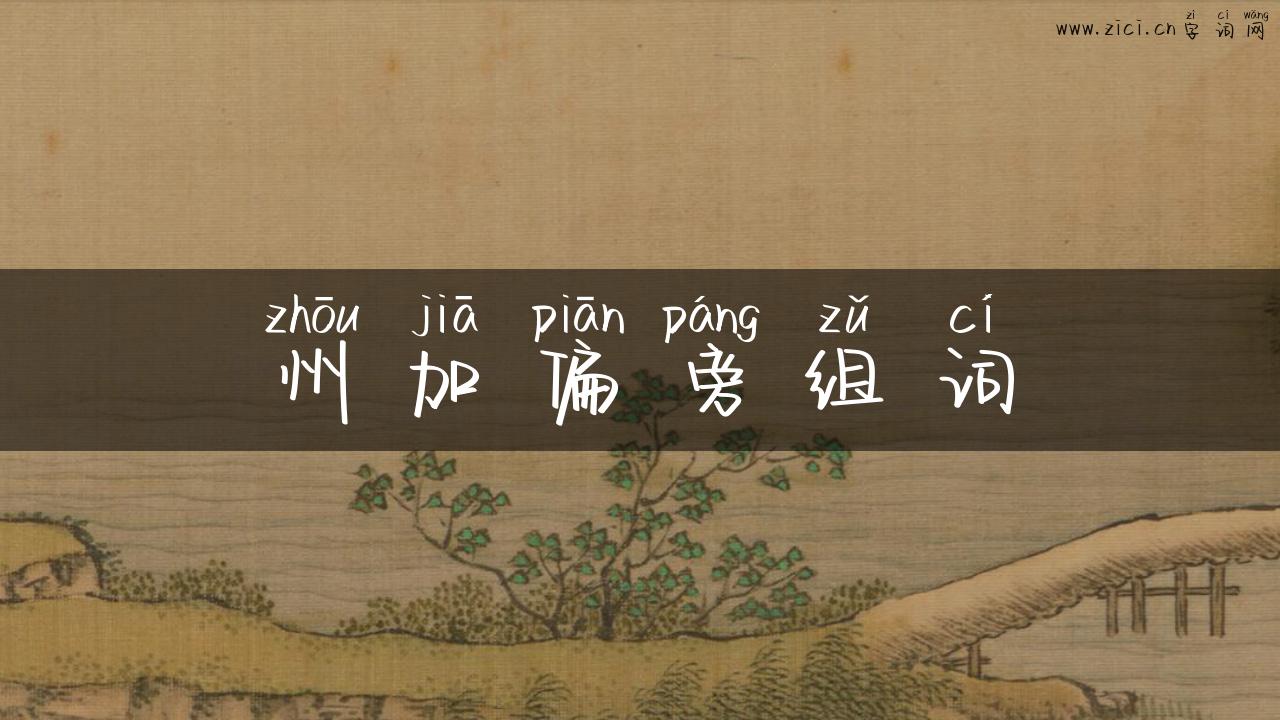 zì cí wǎng
www.zici.cn字词网
zhōu jiā piān páng zǔ cí
州加偏旁组词